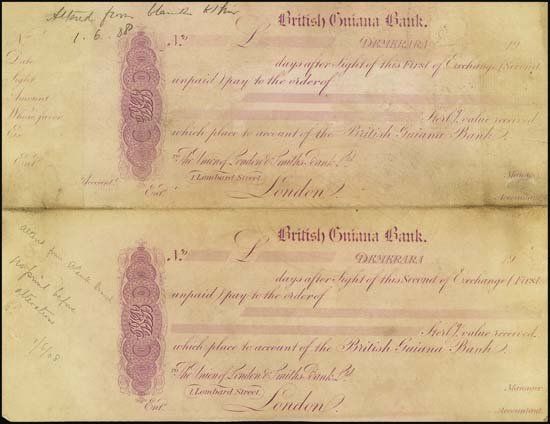 Altered from blank
1.6.08
British Guiana Bank.
No. £ DEMERARA 19
Date days after Sight of this First of Exchange (Second
Sight unpaid) pay to the order of
Amount
Whose favor Sterlg. value received
which place to account of the British Guiana Bank.
To The Union of London & Smiths Bank Ld.
1 Lombard Street, Manager.
Account. Entd. London. Accountant.
British Guiana Bank.
No. £ DEMERARA 19
altered from Blank
days after Sight of this Second of Exchange (First
proposed before unpaid) pay to the order of
alteration
Sterlg. value received
1/6/08 which place to account of the British Guiana Bank.
To The Union of London & Smiths Bank Ld.
1 Lombard Street, Manager.
Entd. London. Accountant.